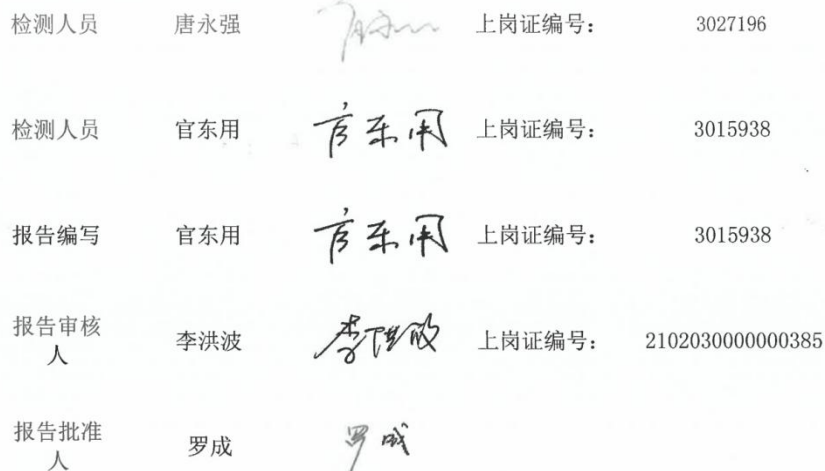 检测人员 唐永强 上岗证编号： 3027196
检测人员 官东用 官东用 上岗证编号： 3015938
报告编写 官东用 官东用 上岗证编号： 3015938
报告审核
人 李洪波 李洪波 上岗证编号： 2102030000000385
报告批准
人 罗成 罗成